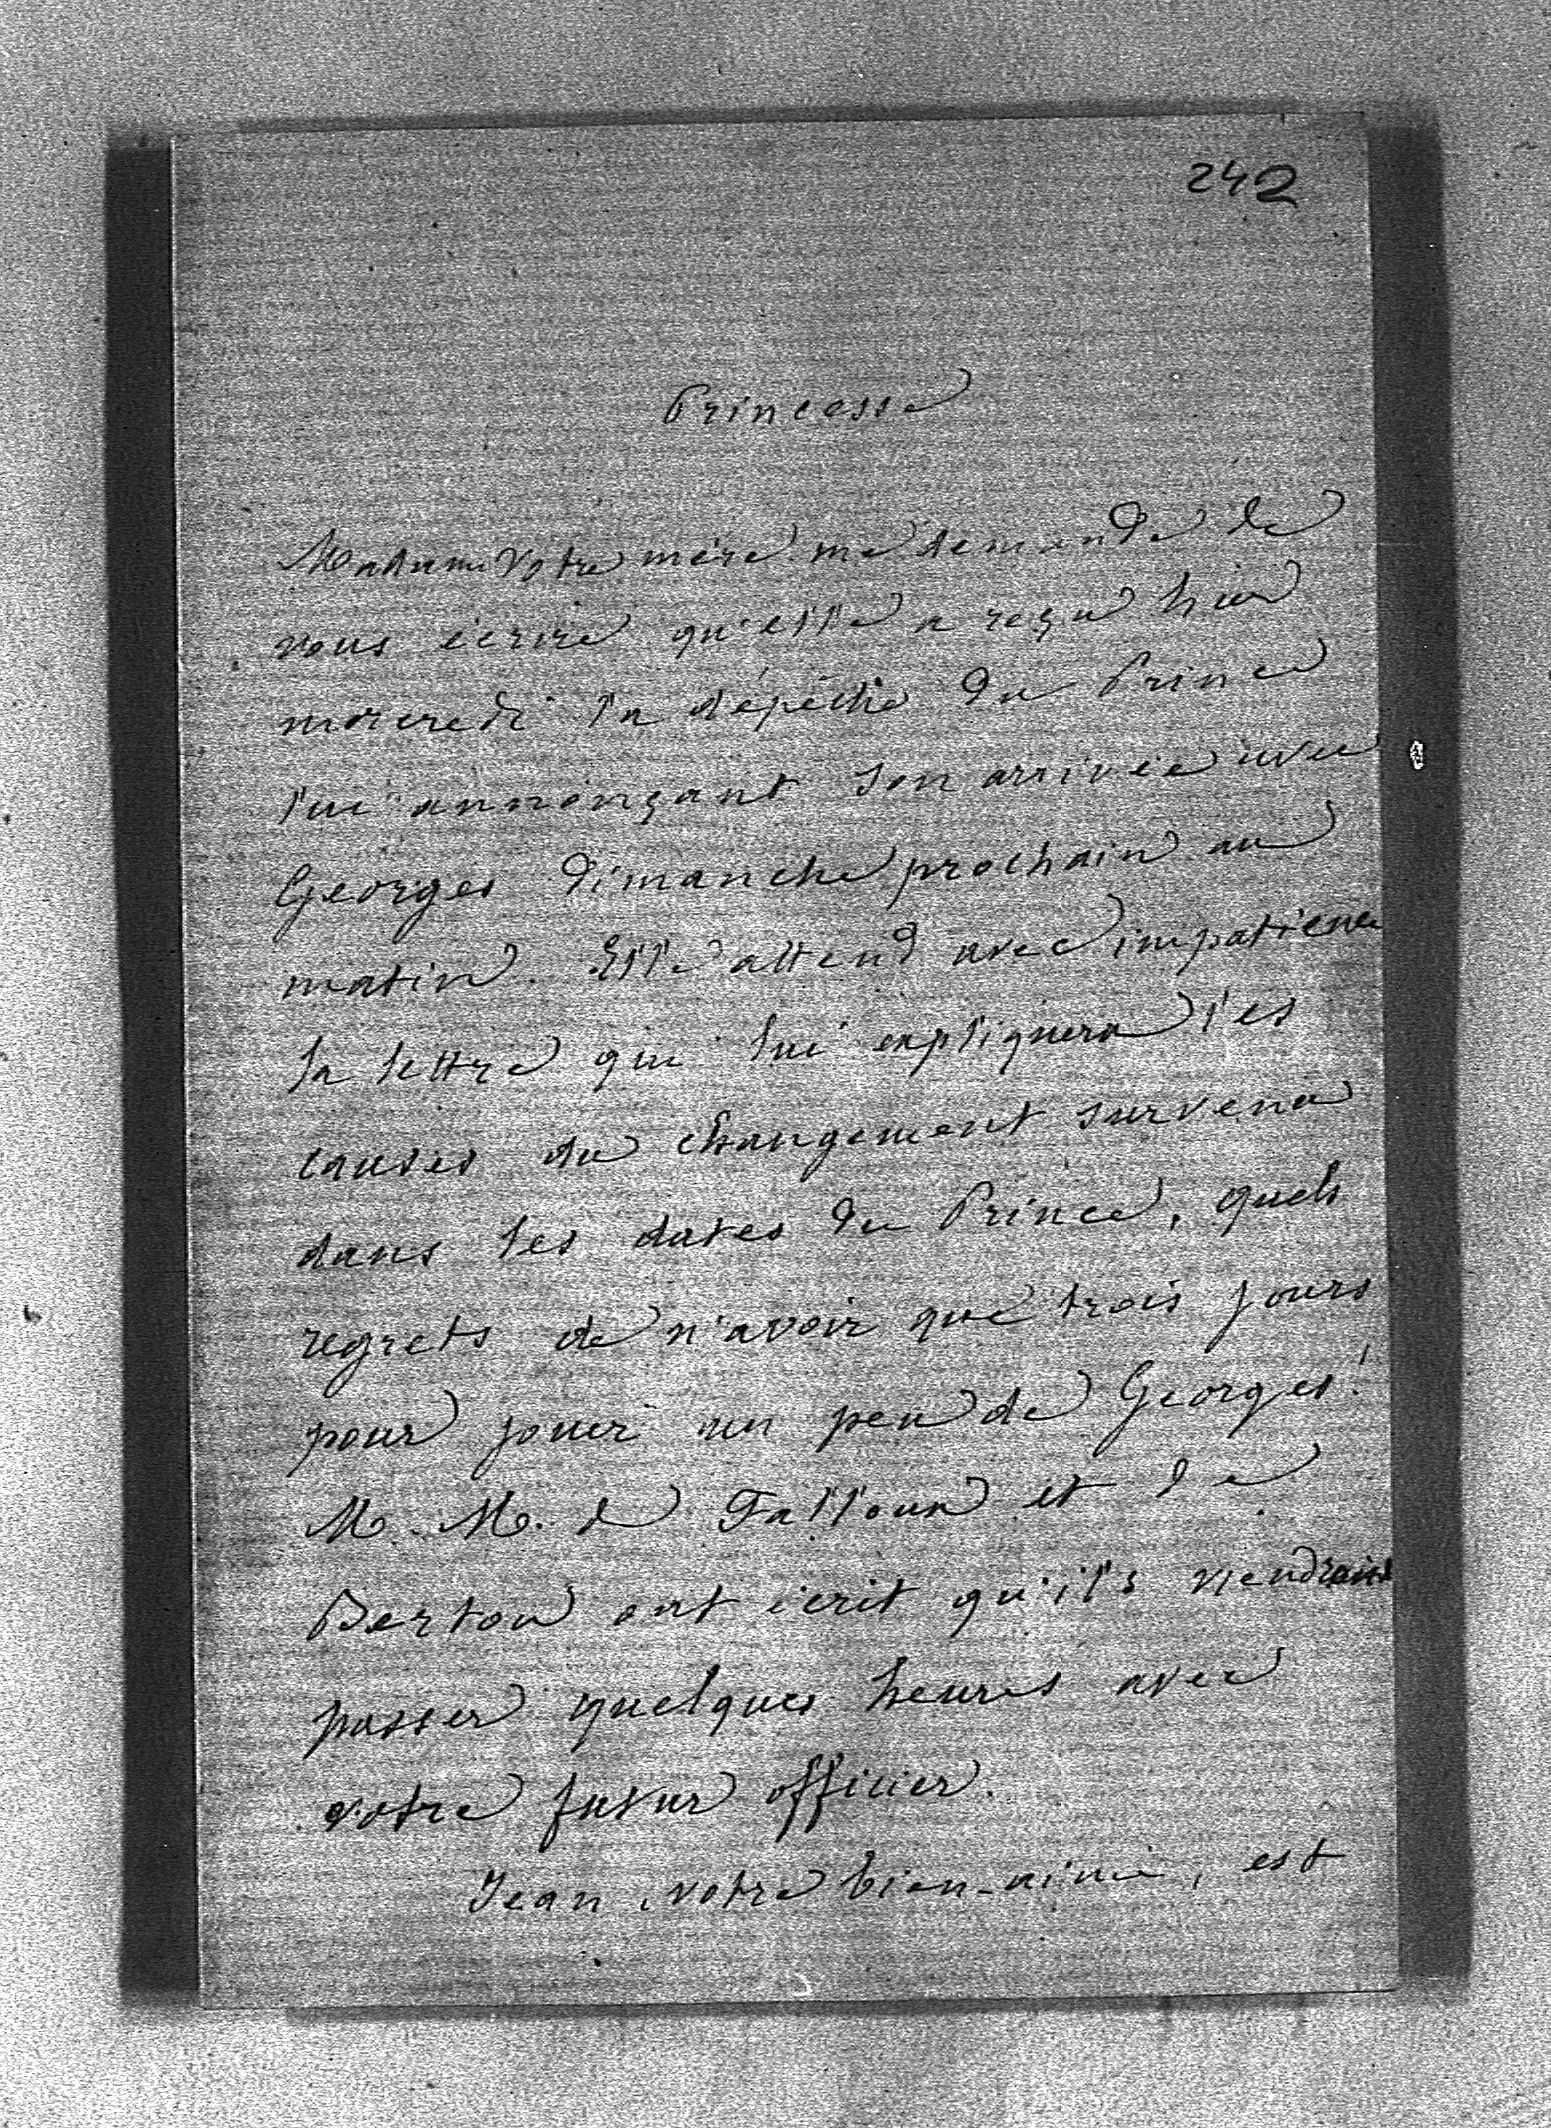 242
Princesse
Madame votre mère me demande de
vous écrire qu'elle a reçu hier
mercredi la dépêche du Prince
lui annonçant son arrivée avec
Georges dimanche prochain au
matin. Elle attend avec impatience
la lettre qui lui expliquera les
causes du changement survenu
dans les dates du Prince, quels
regrets de n'avoir que trois jours
pour jouir un peu de Georges!
M. M. de Falloux et de
Bertou ont écrit qu'ils viendraient
passer quelques heures avec
votre futur officier.
Jean, votre bien-aimé, est